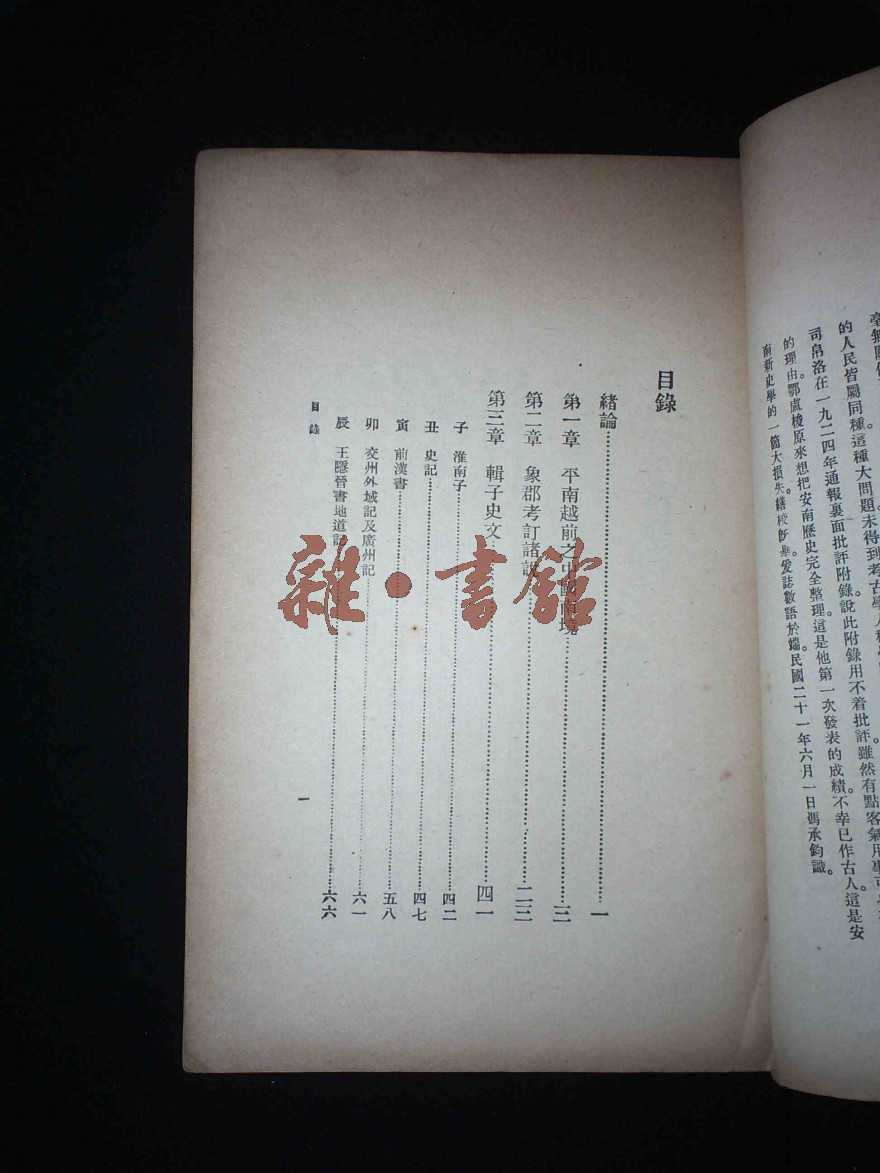 的人民皆屬同種這種大問題未得到考古學人種
司帛洛在一九二四年通報裏面批評附錄說此附錄用不着批評雖然有點客氣用事
的理由。鄂盧梭原來想把安南歷史完全整理。這是他第一次發表的成績。不幸已作古人這是安
南新史學的一箇大損失。繕校
爰誌數語於端民國二十一年六月一日馮承鈞識。
目錄
緒論……一
第一章 平南越前之中國南境……三
第二章 象郡考訂諸說……二三
第三章 輯子史文……四一
子 淮南子……四二
丑 史記……四七
寅 前漢書……五八
卯 交州外域記及廣州記……六一
辰 王隱晉書地道記……六六
目錄
一
雜·書館